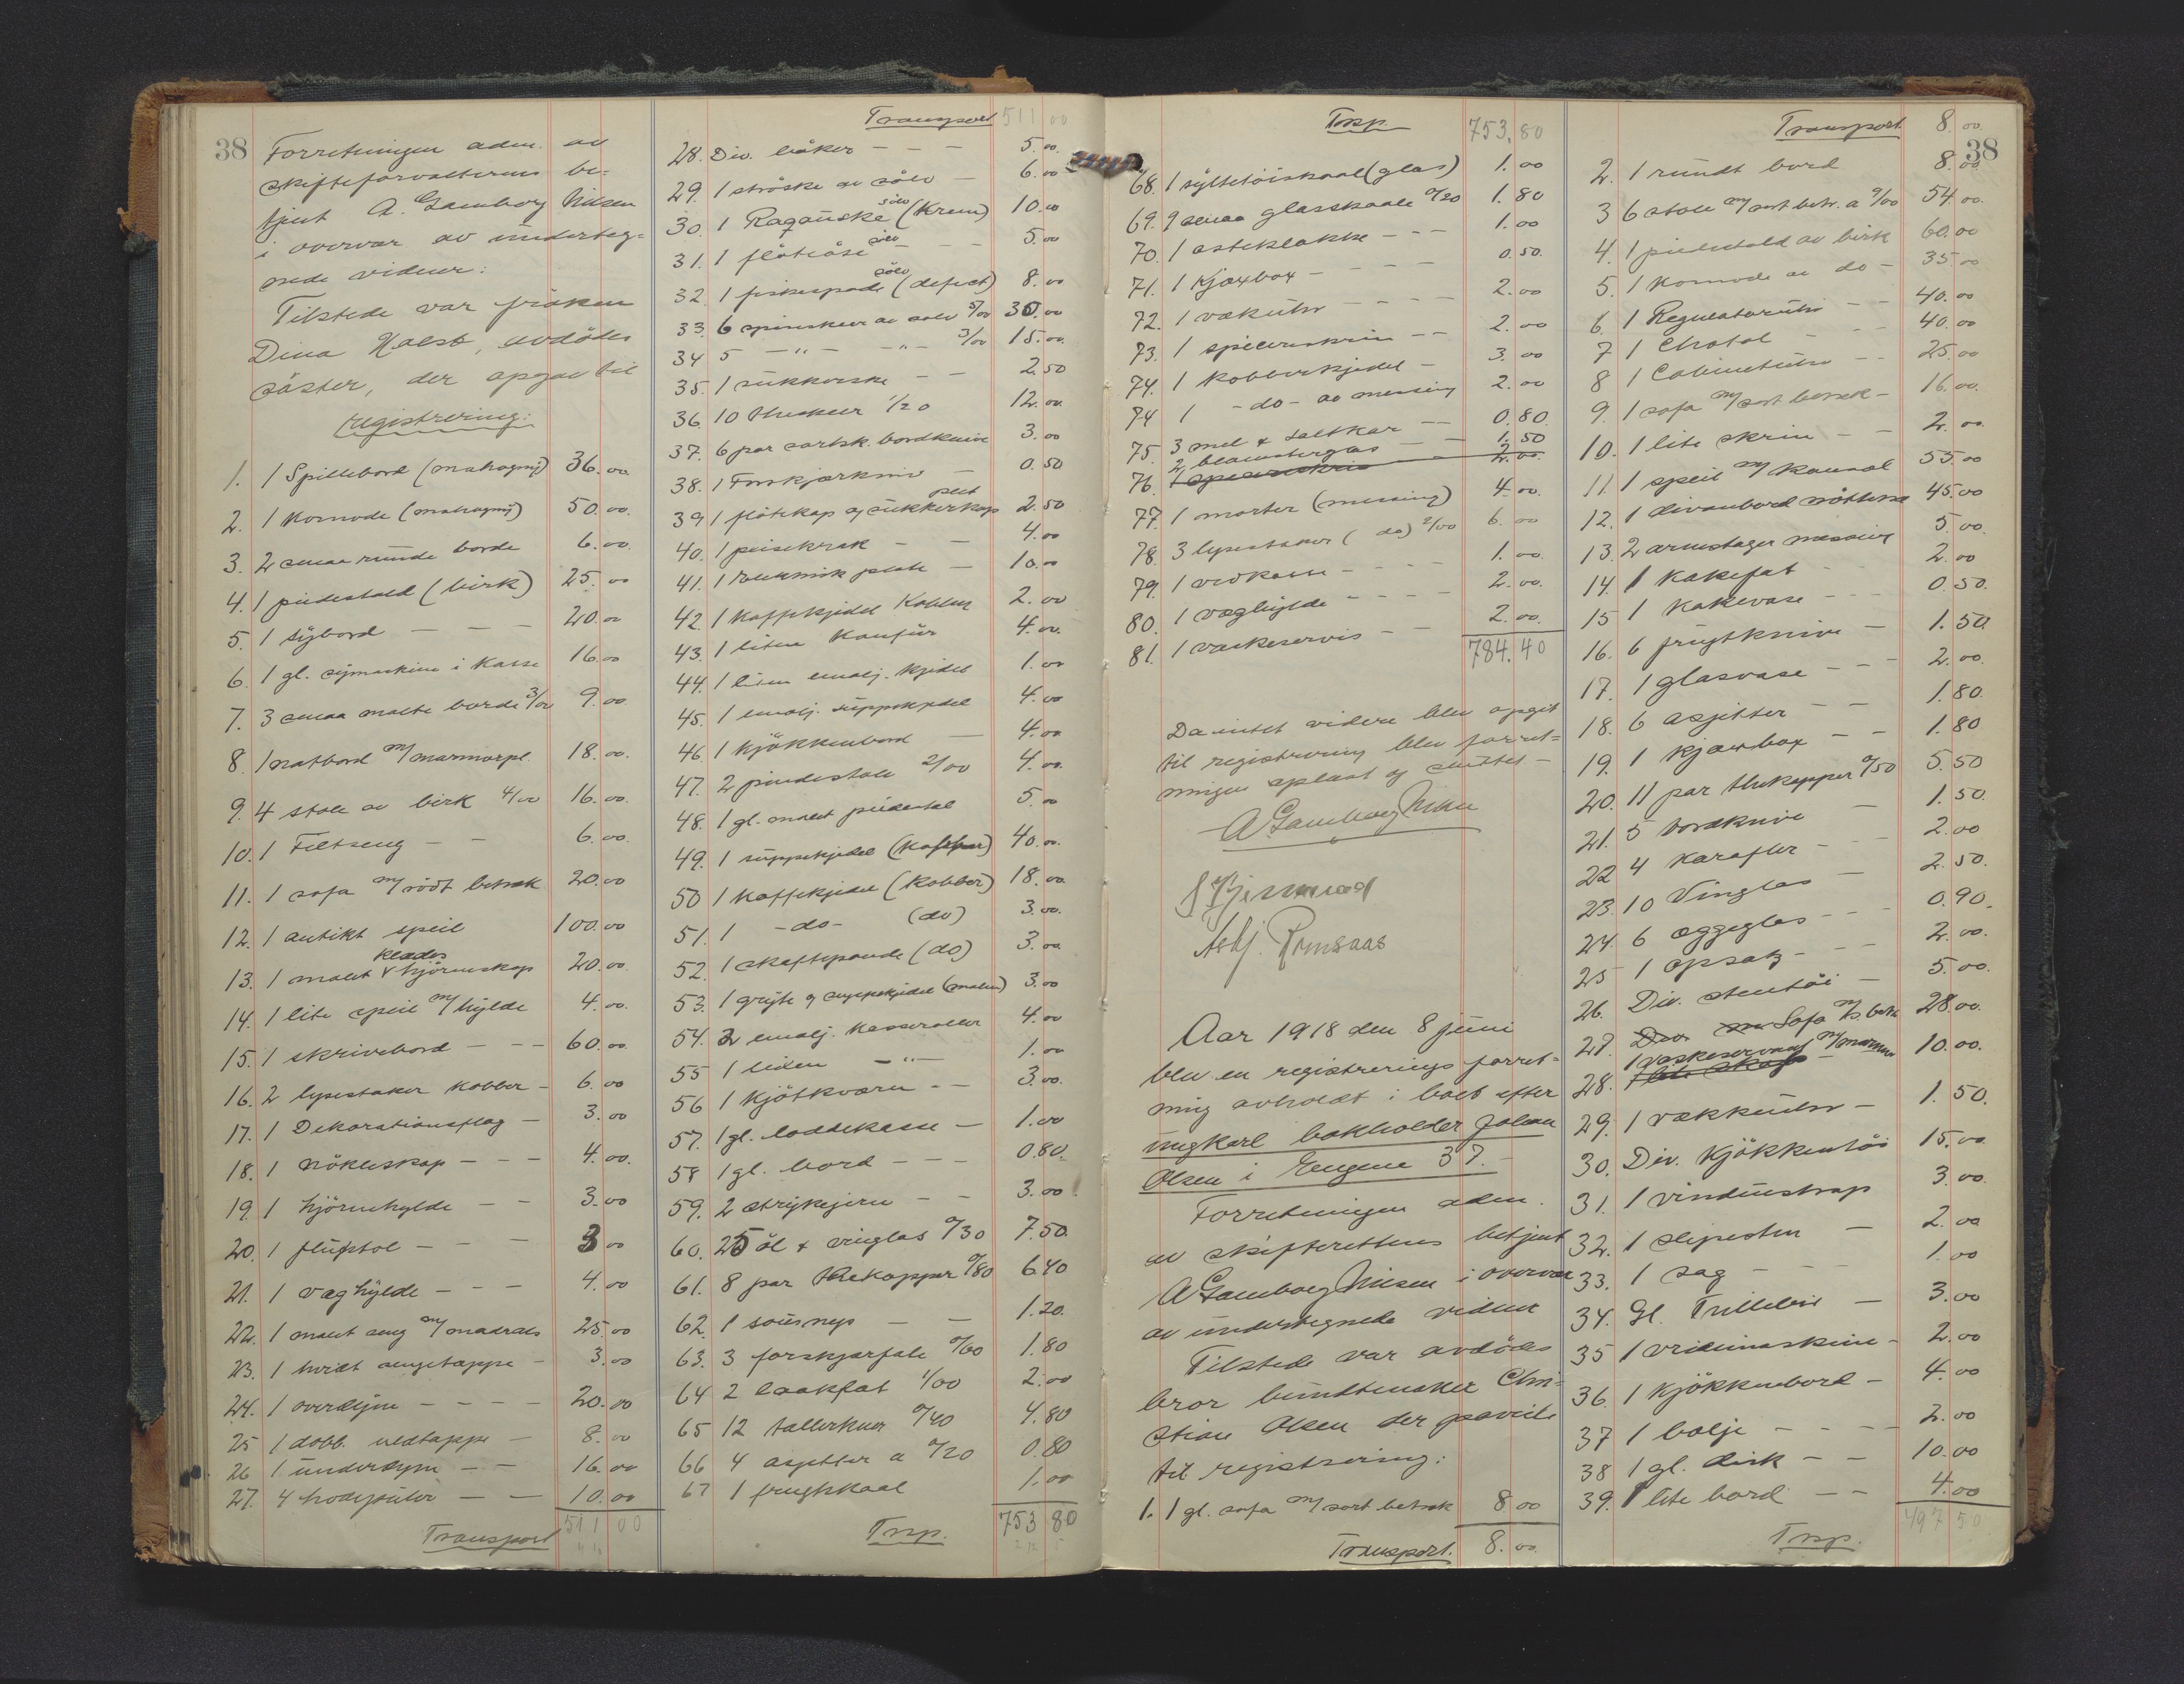 38
Forretningen adm. av
skifteforvalterens be-
tjent A. Gamborg Nilsen
i overvær av underteg-
nede vidner:
Tilstede var frøken
Dina Holst, avdødes
søster, der opgav til
registrering:
1. 1 Spillebord (mahogny) 36.00
2. 1 Komode (mahogny) 50.00
3. 2 smaa runde borde 6.00
4. 1 pidestald (birk) 25.00
5. 1 sybord - - - 20.00
6. 1 gl. symaskine i Kasse 16.00
7. 3 smaa malte borde 3/00 9.00
8. 1 natbord m/ marmorpl. 18.00
9. 4 stole av birk 4/00 16.00
10. 1 Feltseng - - 6.00
11. 1 sofa m/ rödt betræk 20.00
12. 1 antikt speil 100.00
13. 1 malet klædes & hjörneskap 20.00
14. 1 lite speil m/ hylde 4.00
15. 1 skrivebord - - - 60.00
16. 2 lysestaker Kobber - 6.00
17. 1 Dekorationsflag - 3.00
18. 1 nökleskap - - - 4.00
19. 1 hjörnehylde - - 3.00
20. 1 fluktstol - - - 3.00
21. 1 væghylde - - - 4.00
22. 1 malet seng m/ madrads 25.00
23. 1 hvidt sengetæppe - 3.00
24. 1 overdyne - - - - 20.00
25 1 dobb. uldtæppe - 8.00
26 1 underdyne - - 16.00
27. 4 hodeputer - - 10.00
Transport 511 00
Transport 511 00
28. Div. bøker - - - 5.00
29. 1 ströske av sölv - 6.00
30. 1 Ragauske sölv (Krum) 10.00
31. 1 flöteöse sölv - - - 5.00
32. 1 fiskespade sölv (defect) 8.00
33. 6 spiseskeer av sölv 5/00 30.00
34 5 - " - - " - 3/00 15.00
35. 1 sukkerske - - 2.50
36. 10 theskeer 1/20 12.00
37. 6 par sortsk. bordknive 3.00
38. 1 Forskjærkniv - 0.50
39 1 flötekop og sukkerkop plet 2.50
40. 1 peisekrak - - 4.00
41. 1 elektrisk plate - 10.00
42. 1 Kaffekjedel Kobber 2.00
43. 1 liten Komfur 4.00
44. 1 liten emalj. Kjedel 1.00
45. 1 emalj. suppekjedel 4.00
46. 1 kjökkenbord - 4.00
47. 2 pindestole 2/00 4.00
48. 1 gl. malet pidestal 5.00
49. 1 suppekjedel (Kobber) 40.00
50 1 Kaffekjedel (Kobber) 18.00
51. 1 - do - (do) 3.00
52. 1 skaftepande (do) 3.00
53. 1 gryte og suppekjedel (malm) 3.00
54. 2 emalj. Kasseroller 4.00
55 1 liden - " - 1.00
56 1 Kjötkværn - - 3.00
57. 1 gl. loddekasse - 1.00
58 1 gl. bord - - - 0.80
59. 2 strykejern - - 3.00
60. 25 öl & vinglas 0/30 7.50
61. 8 par thekopper 0/80 6.40
62. 1 sausneb - - 1.20
63. 3 forskjærfate 0/60 1.80
64 2 laakfat 1/00 2.00
65 12 tallerkner 0/40 4.80
66 4 asjetter a 0/20 0.80
67 1 frugtskaal 1.00
Trsp. 753 80
Trsp. 753.80
68. 1 syltetöiskaal (glas) 1.00
69. 9 smaa glasskaale 0/20 1.80
70. 1 osteklokke - - - 1.00
71. 1 Kjæxbox - - - - 0.50
72. 1 vækuhr - - - - 2.00
73. 1 speilskrin - - 2.00
74. 1 Kobberkjedel - 3.00
74 1 - do - av messing 2.00
75. 3 mel & saltkar - - 0.80
2 blomsterglas - - 1.50
76. 2.00
77. 1 morter (messing) 4.00
78. 3 lysestaker (do) 2/00 6.00
79. 1 vedkasse - - - - 1.00
80. 1 væghylde - - - - 2.00
81. 1 vaskeservis - - 2.00
784.40
Da intet videre blev opgit
til registrering blev forret-
ningen oplæst og sluttet -
A Gamborg Nilsen
Asbj. Romsaas
Aar 1918 den 8 juni
blev en registrerings forret-
ning avholdt i boet efter
ungkarl bokholder Johan
Olsen i Engene 37.
Forretningen adm.
av skifterettens betjent
A Gamborg Nilsen i overvær
av undertegnede vidner
Tilstede var avdødes
bror bundtmaker Chri-
stian Olsen der paaviste
til registrering:
1. 1 gl. sofa m/ sort betræk 8 00
Transport. 8.00
Transport 8.00
38
2. 1 rundt bord 8.00
3 6 stole m/ sort betr. a 9/00 54.00
4. 1 pidestald av birk 60.00
5. 1 Komode av do - 35.00
6. 1 Regulatoruhr - - 40.00
7 1 Chatol - - - 40.00
8 1 Cabinetuhr - - 25.00
9. 1 sofa m/ sort betræk - 16.00
10. 1 lite skrin - - 2.00
11. 1 speil m/ Konsol 55.00
12. 1 divanbord nöttetræ 45.00
13. 2 armstager messing 5.00
14. 1 Kakefat - 2.00
15 1 Kakevase - - - 0.50
16. 6 frugtknive - 1.50
17. 1 glasvase - - - 2.00
18. 6 asjetter - - 1.80
19. 1 kjæxbox - - 1.80
20. 11 par thekopper 0/50 5.50
21. 5 bordknive - 1.50
22 4 Karafler - - 2.00
23. 10 Vinglas - 2.50
24. 6 æggeglas - - - 0.90
25 1 opsats - - - 2.00
26. Div. stentöi - 5.00
27. Sofa m/ 28.00
1 vaskeservant m/ marmor
28. 10.00
29. 1 vækkeuhr - 1.50
30. Div. Kjökkentöi 15.00
31. 1 vinduestrap 3.00
32. 1 slipesten - 2.00
33. 1 sag - - - 1.00
34. Gl. Trillebör - 3.00
35 1 vridemaskine - 2.00
36. 1 Kjökkenbord - 4.00
37 1 balje - - - - 2.00
38 1 gl. disk - - 10.00
39. 1 lite bord - - 4.00
Trsp. 497 50